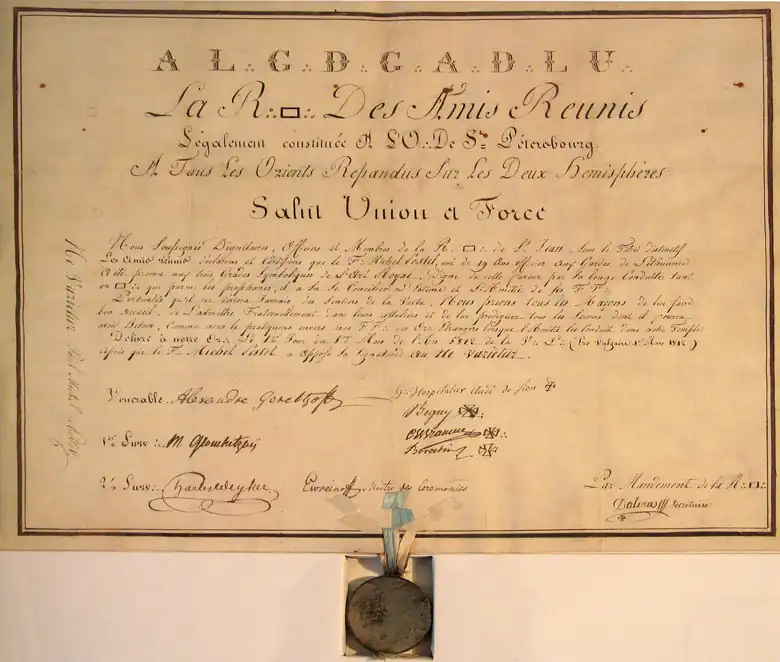 A∴ L∴ G∴ D∴ G∴ A∴ D∴ L∴ U∴
La R∴ ▭∴ Des Amis Reunis
Légalement constituée A L'O∴ De St. Pétersbourg
A Tous Les Orients Repandus Sur Les Deux Hemisphères
Salut Union et Force
Nous Soussignés Dignitaires, Officiers et Membres de la R∴ ▭∴ de St. Jean, sous le Titre distinctif
Les Amis réunis déclarons et Certifions que le F∴ Michel Pestel, agé de 19 Ans officier aux Gardes de
A été promu aux trois Grades Symboliques de l'Art Royal, Digne de cette faveur par la bonne Conduite tant
en ▭∴ que parmi les prophanes, il a su se Concilier L'Estime et L'Amitié de ses F∴F∴
qu'il ne déviera Jamais, des Sentiers de la Vertu, Nous prions tous les Maçons de lui faire
bon accueil, de L'admettre Fraternellement dans leurs atteliers et de lui prodiguer tous les Secours dont il pourra
avoir Besoin, Comme nous le pratiquons envers nos F∴F∴ des Orz Etrangers lorsque l'Amitié les Conduit dans notre Temple
Délivré à notre Or∴ Le 1er Jour du 1er Mois de l'An 5812 de la V∴ L∴ (Ere Vulgaire 1er Mars 1812)
après que le F∴ Michel Pestel a apposé sa Signature au Ne Varietur.
Ne Varietur Michel
Venerable Alexandre Gerebzoff
G∴ Hospitalier
1er Surv∴ M.
2d Surv∴
Evreinoff Maitre des Ceremonies
Par Mandement de la R∴ ▭∴
Secretaire